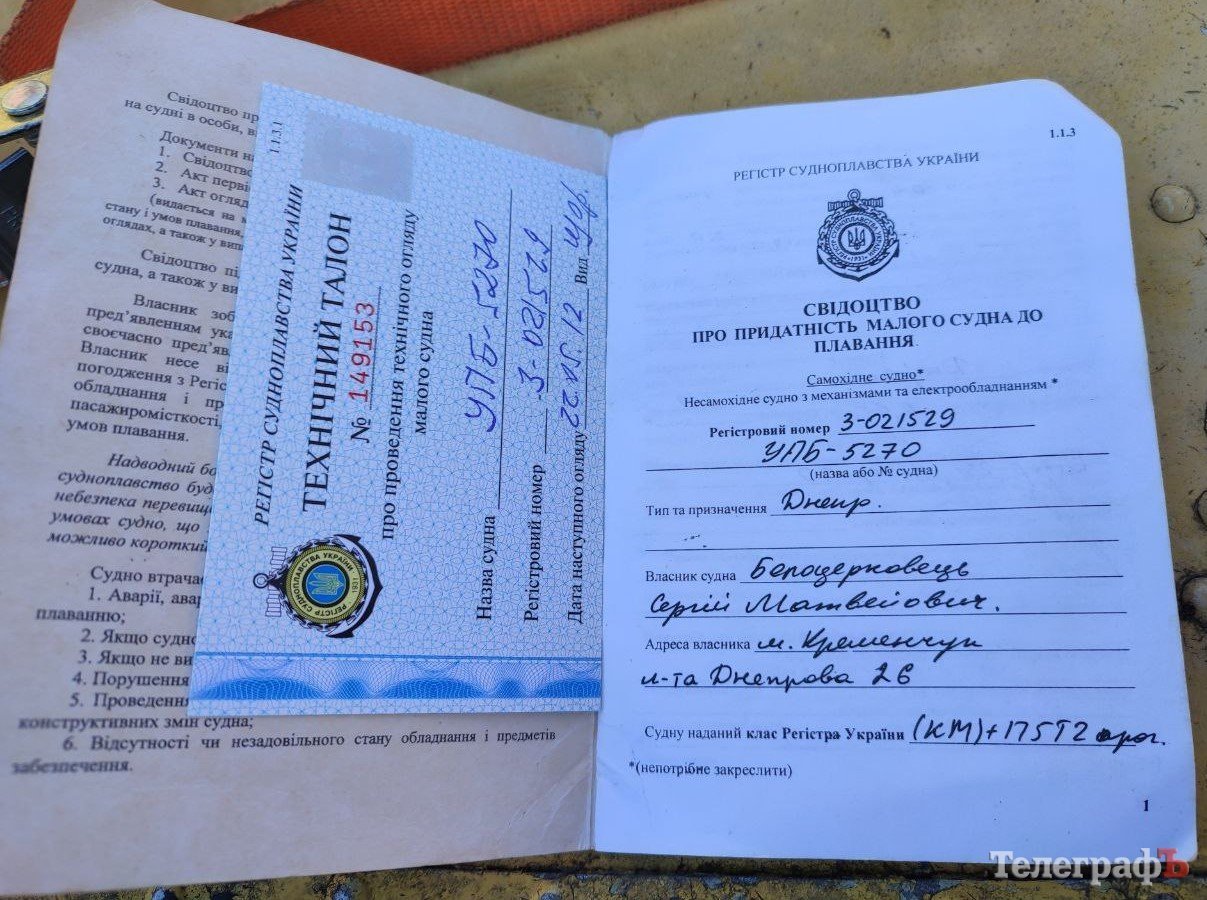 Свідоцтво пр
на судні в особи, в
Документи на
1. Свідоцтво
2. Акт перві
3. Акт огляд
(видається на
стану і умов плавання,
оглядах, а також у вип
Свідоцтво пі
судна, а також у ви
Власник зоб
пред’явленням ука
своєчасно пред’яв
Власник несе ві
погодження з Регіс
обладнання і пр
пасажиромісткості,
умов плавання.
Надводний бо
судноплавство буд
небезпека перевищ
умовах судно, що
можливо короткий
Судно втрачає
1. Аварії, авар
плаванню;
2. Якщо судно
3. Якщо не ви
4. Порушення
5. Проведення
конструктивних змін судна;
6. Відсутності чи незадовільного стану обладнання і предметів
забезпечення.
1.1.3.1
РЕГІСТР СУДНОПЛАВСТВА УКРАЇНИ
ТЕХНІЧНИЙ ТАЛОН
№ 149153
про проведення технічного огляду
малого судна
Назва судна УПБ-5270
Регістровий номер 3-021529
Дата наступного огляду 22.05.12 Вид
РЕГІСТР СУДНОПЛАВСТВА УКРАЇНИ
1931
1.1.3
РЕГІСТР СУДНОПЛАВСТВА УКРАЇНИ
СВІДОЦТВО
ПРО ПРИДАТНІСТЬ МАЛОГО СУДНА ДО
ПЛАВАННЯ
Самохідне судно*
Несамохідне судно з механізмами та електрообладнанням *
Регістровий номер 3-021529
УПБ-5270
(назва або № судна)
Тип та призначення Днепр.
Власник судна Белоцерковець
Сергій Матвейович.
Адреса власника м. Кременчук
Днепрова 26
Судну наданий клас Регістра України (КМ)+
*(непотрібне закреслити)
1
ТелеграфЪ